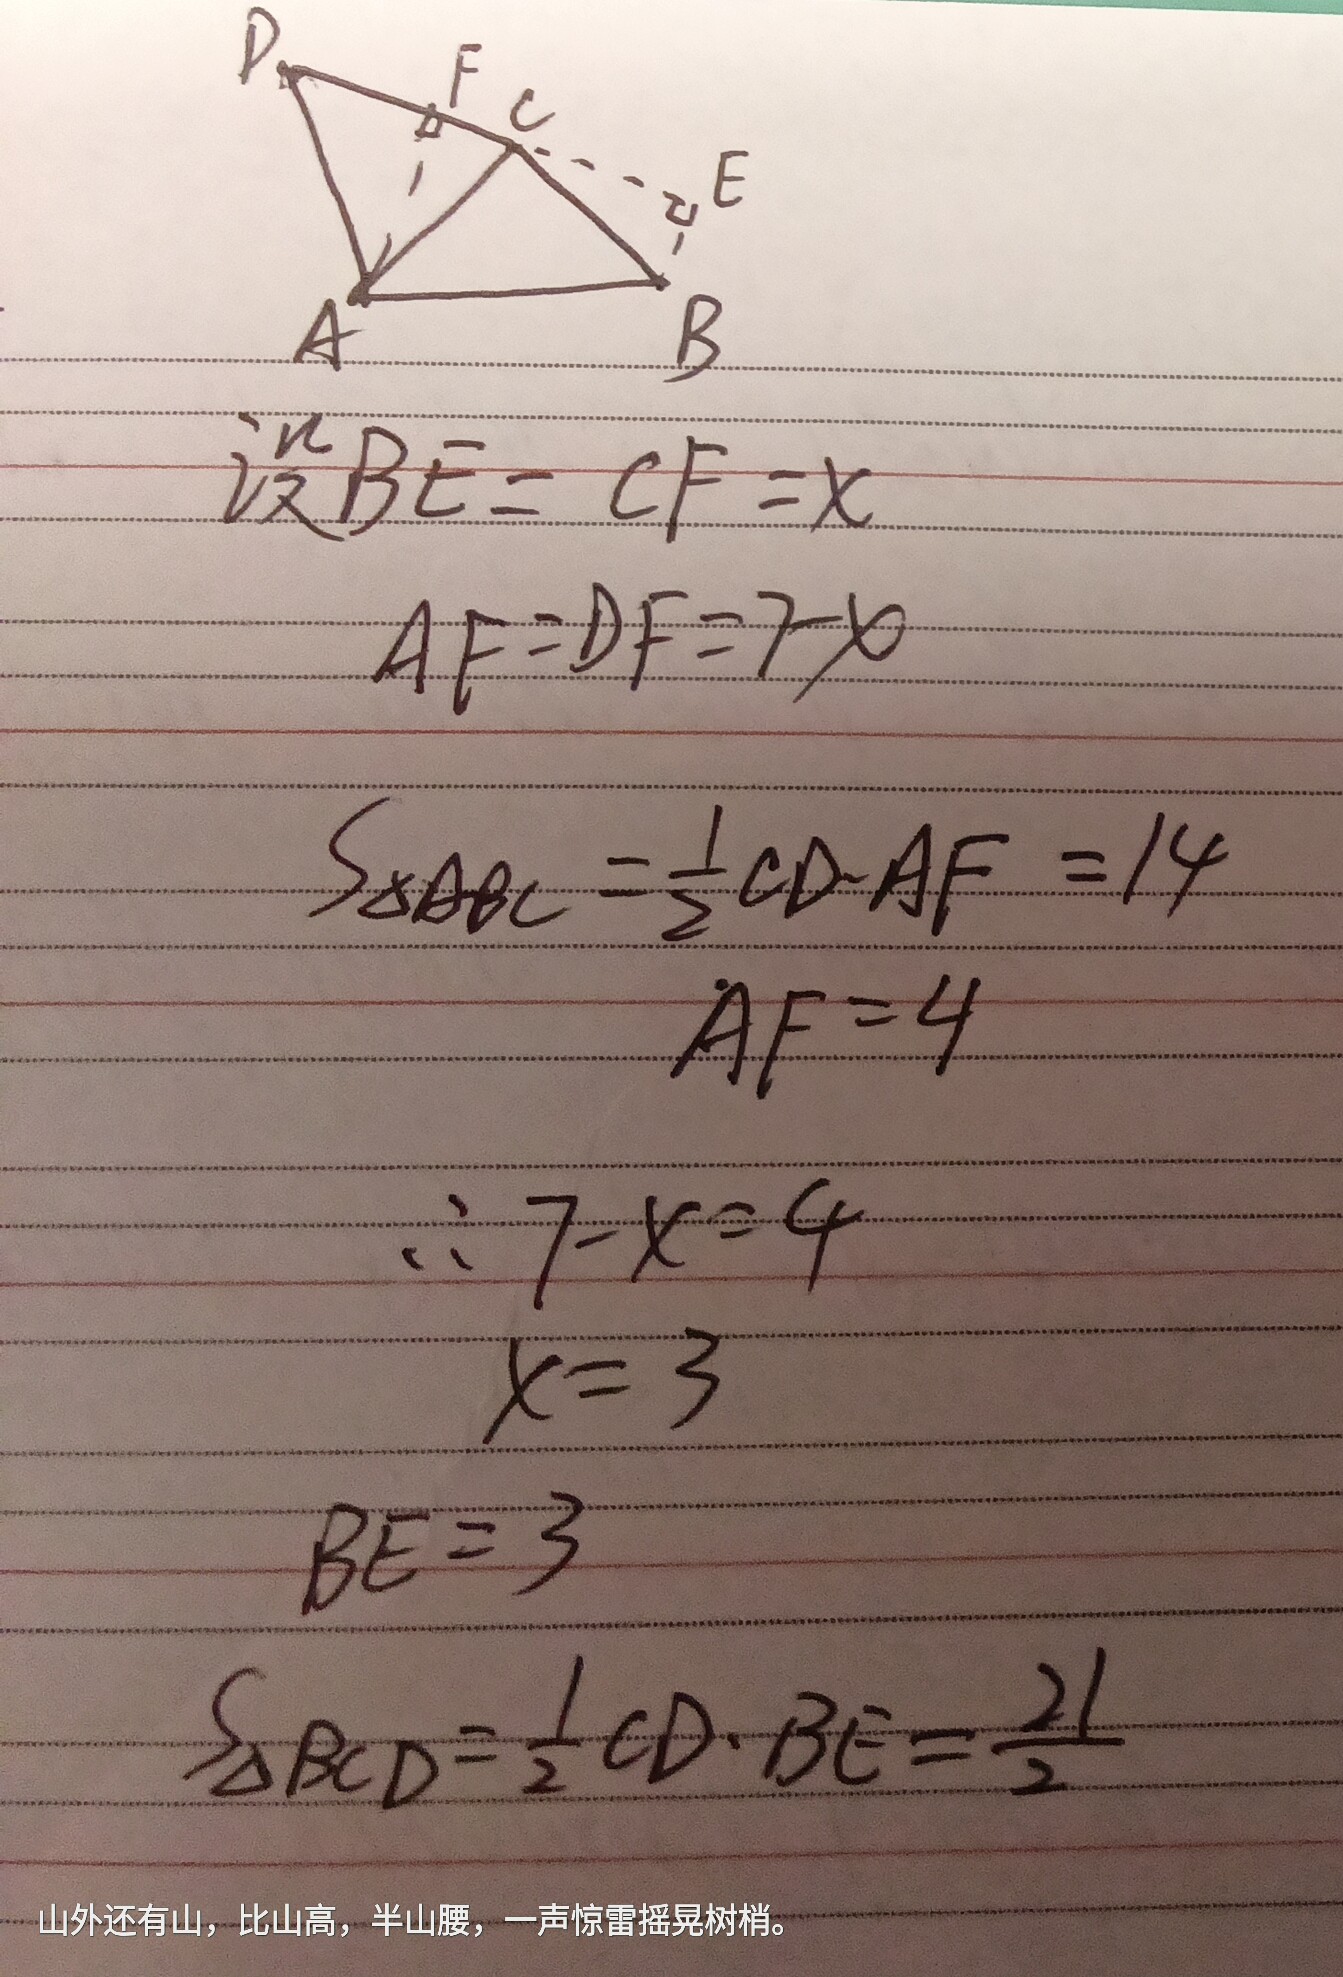 D
F
C
E
A
B
设BE=CF=x
AF=DF=7-x
S△ABC=1/2CD·AF=14
AF=4
∴7-x=4
x=3
BE=3
S△BCD=1/2CD·BE=21/2
山外还有山，比山高，半山腰，一声惊雷摇晃树梢。